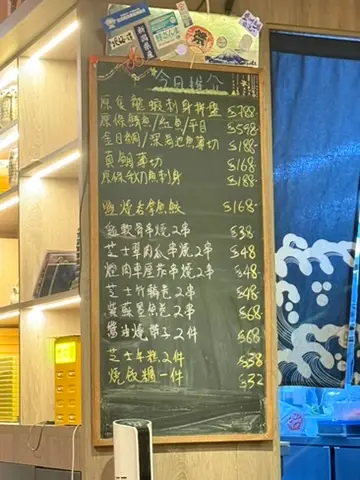 今日推介
原隻龍蝦刺身拼盤 $788-
原條鯖魚/紅魚/平目 $598-
金目鯛/深海池魚薄切 $188-
真鯛薄切 $168-
原條 刺身 $188-
鹽燒 魚鮫 $168-
軟骨串燒2串 $38-
芝士 肉 串燒2串 $48
肉車厘茄串燒2串 $48
芝士竹輪卷2串 $48
紫蘇 魚卷2串 $68
燒帶子2件 $68
芝士年糕2件 $38
燒飯糰一件 $32